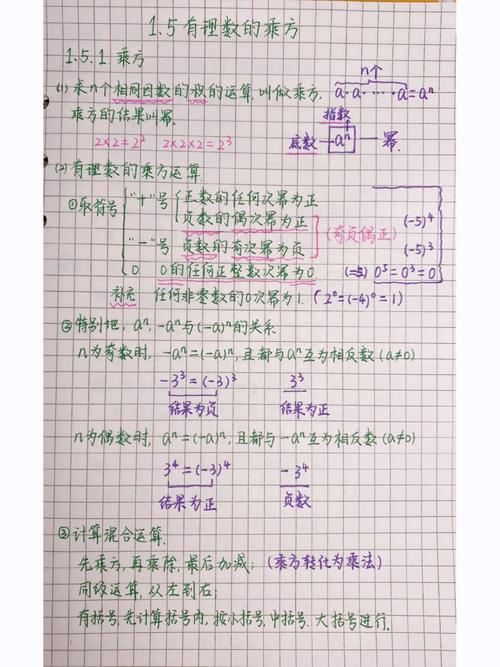 1.5 有理数的乘方
1.5.1 乘方
n个
(1) 求n个相同因数的积的运算,叫做乘方, a·a·…·a=aⁿ
乘方的结果叫幂. 指数
2×2=2² 2×2×2=2³ 底数—aⁿ—幂.
(2) 有理数的乘方运算.
①取符号 "+"号 正数的任何次幂为正
负数的偶次幂为正 (奇负偶正) (-5)⁴
"-"号 负数的奇次幂为负 (-5)³
0 0的任何正整数次幂为0 0⁵=0³=0
补充 任何非零数的0次幂为1. (2⁰=(-4)⁰=1)
②特别地, aⁿ, -aⁿ与(-a)ⁿ的关系
n为奇数时, -aⁿ=(-a)ⁿ,且都与aⁿ互为相反数(a≠0)
-3³=(-3)³ 3³
结果为负 结果为正
n为偶数时, aⁿ=(-a)ⁿ,且都与-aⁿ互为相反数(a≠0)
3⁴=(-3)⁴ -3⁴
结果为正 负数
③计算混合运算.
先乘方,再乘除,最后加减; (乘方转化为乘法)
同级运算,从左到右;
有括号,先计算括号内,按小括号.中括号.大括号进行.